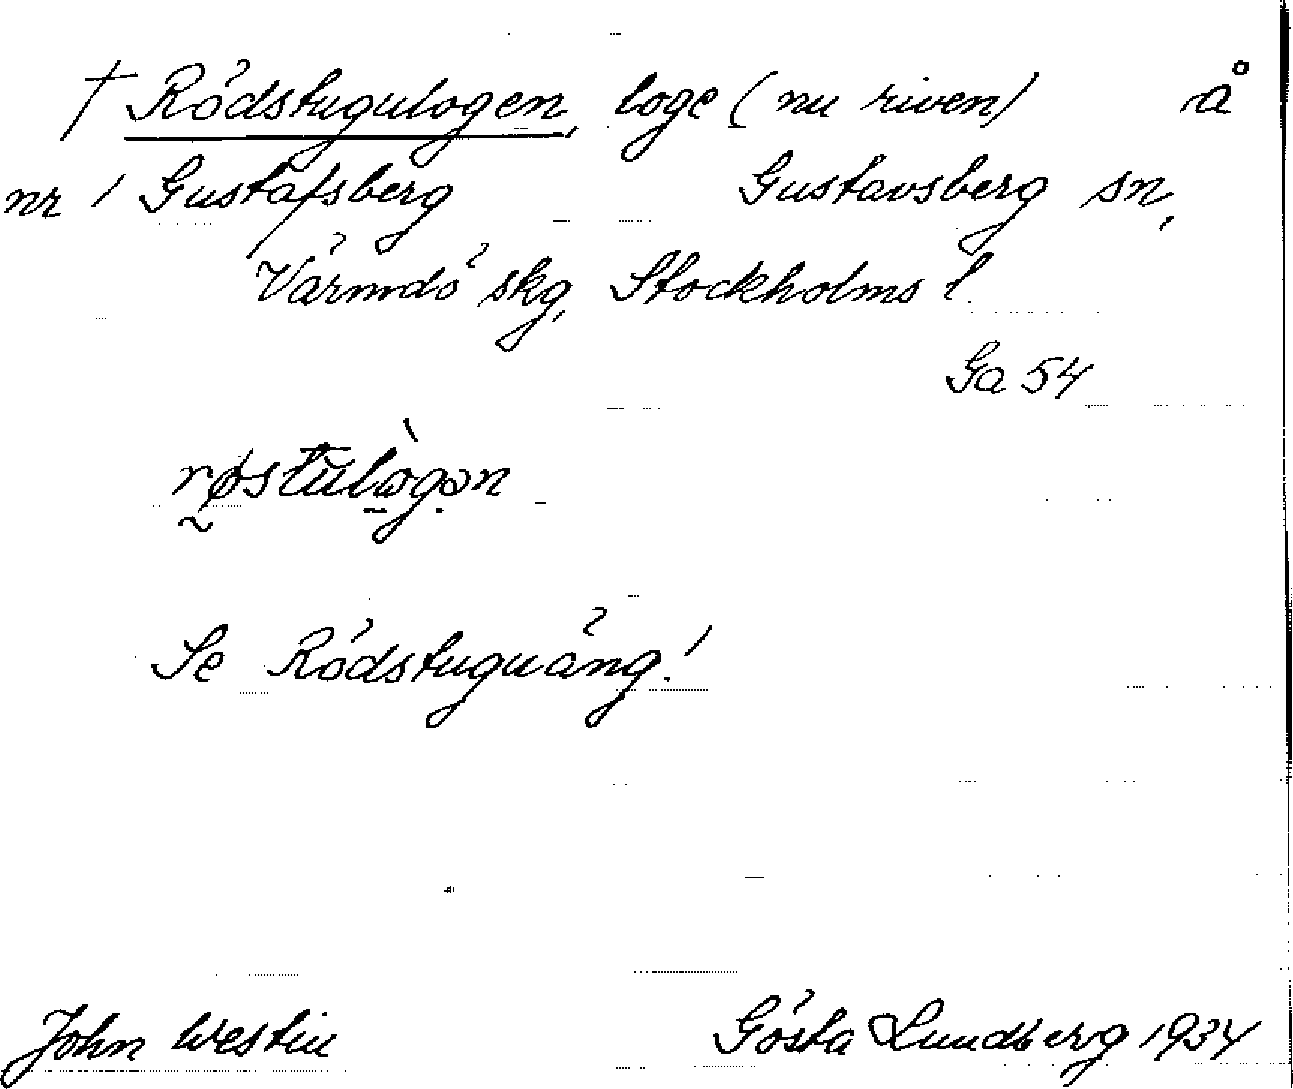 † Rödstugulogen, loge (nu riven) å
nr 1 Gustafsberg Gustavsberg sn,
Värmdö skg, Stockholms l.
Ga 54
røstulògən
Se Rödstuguäng!
John Westin Gösta Lundberg 1934